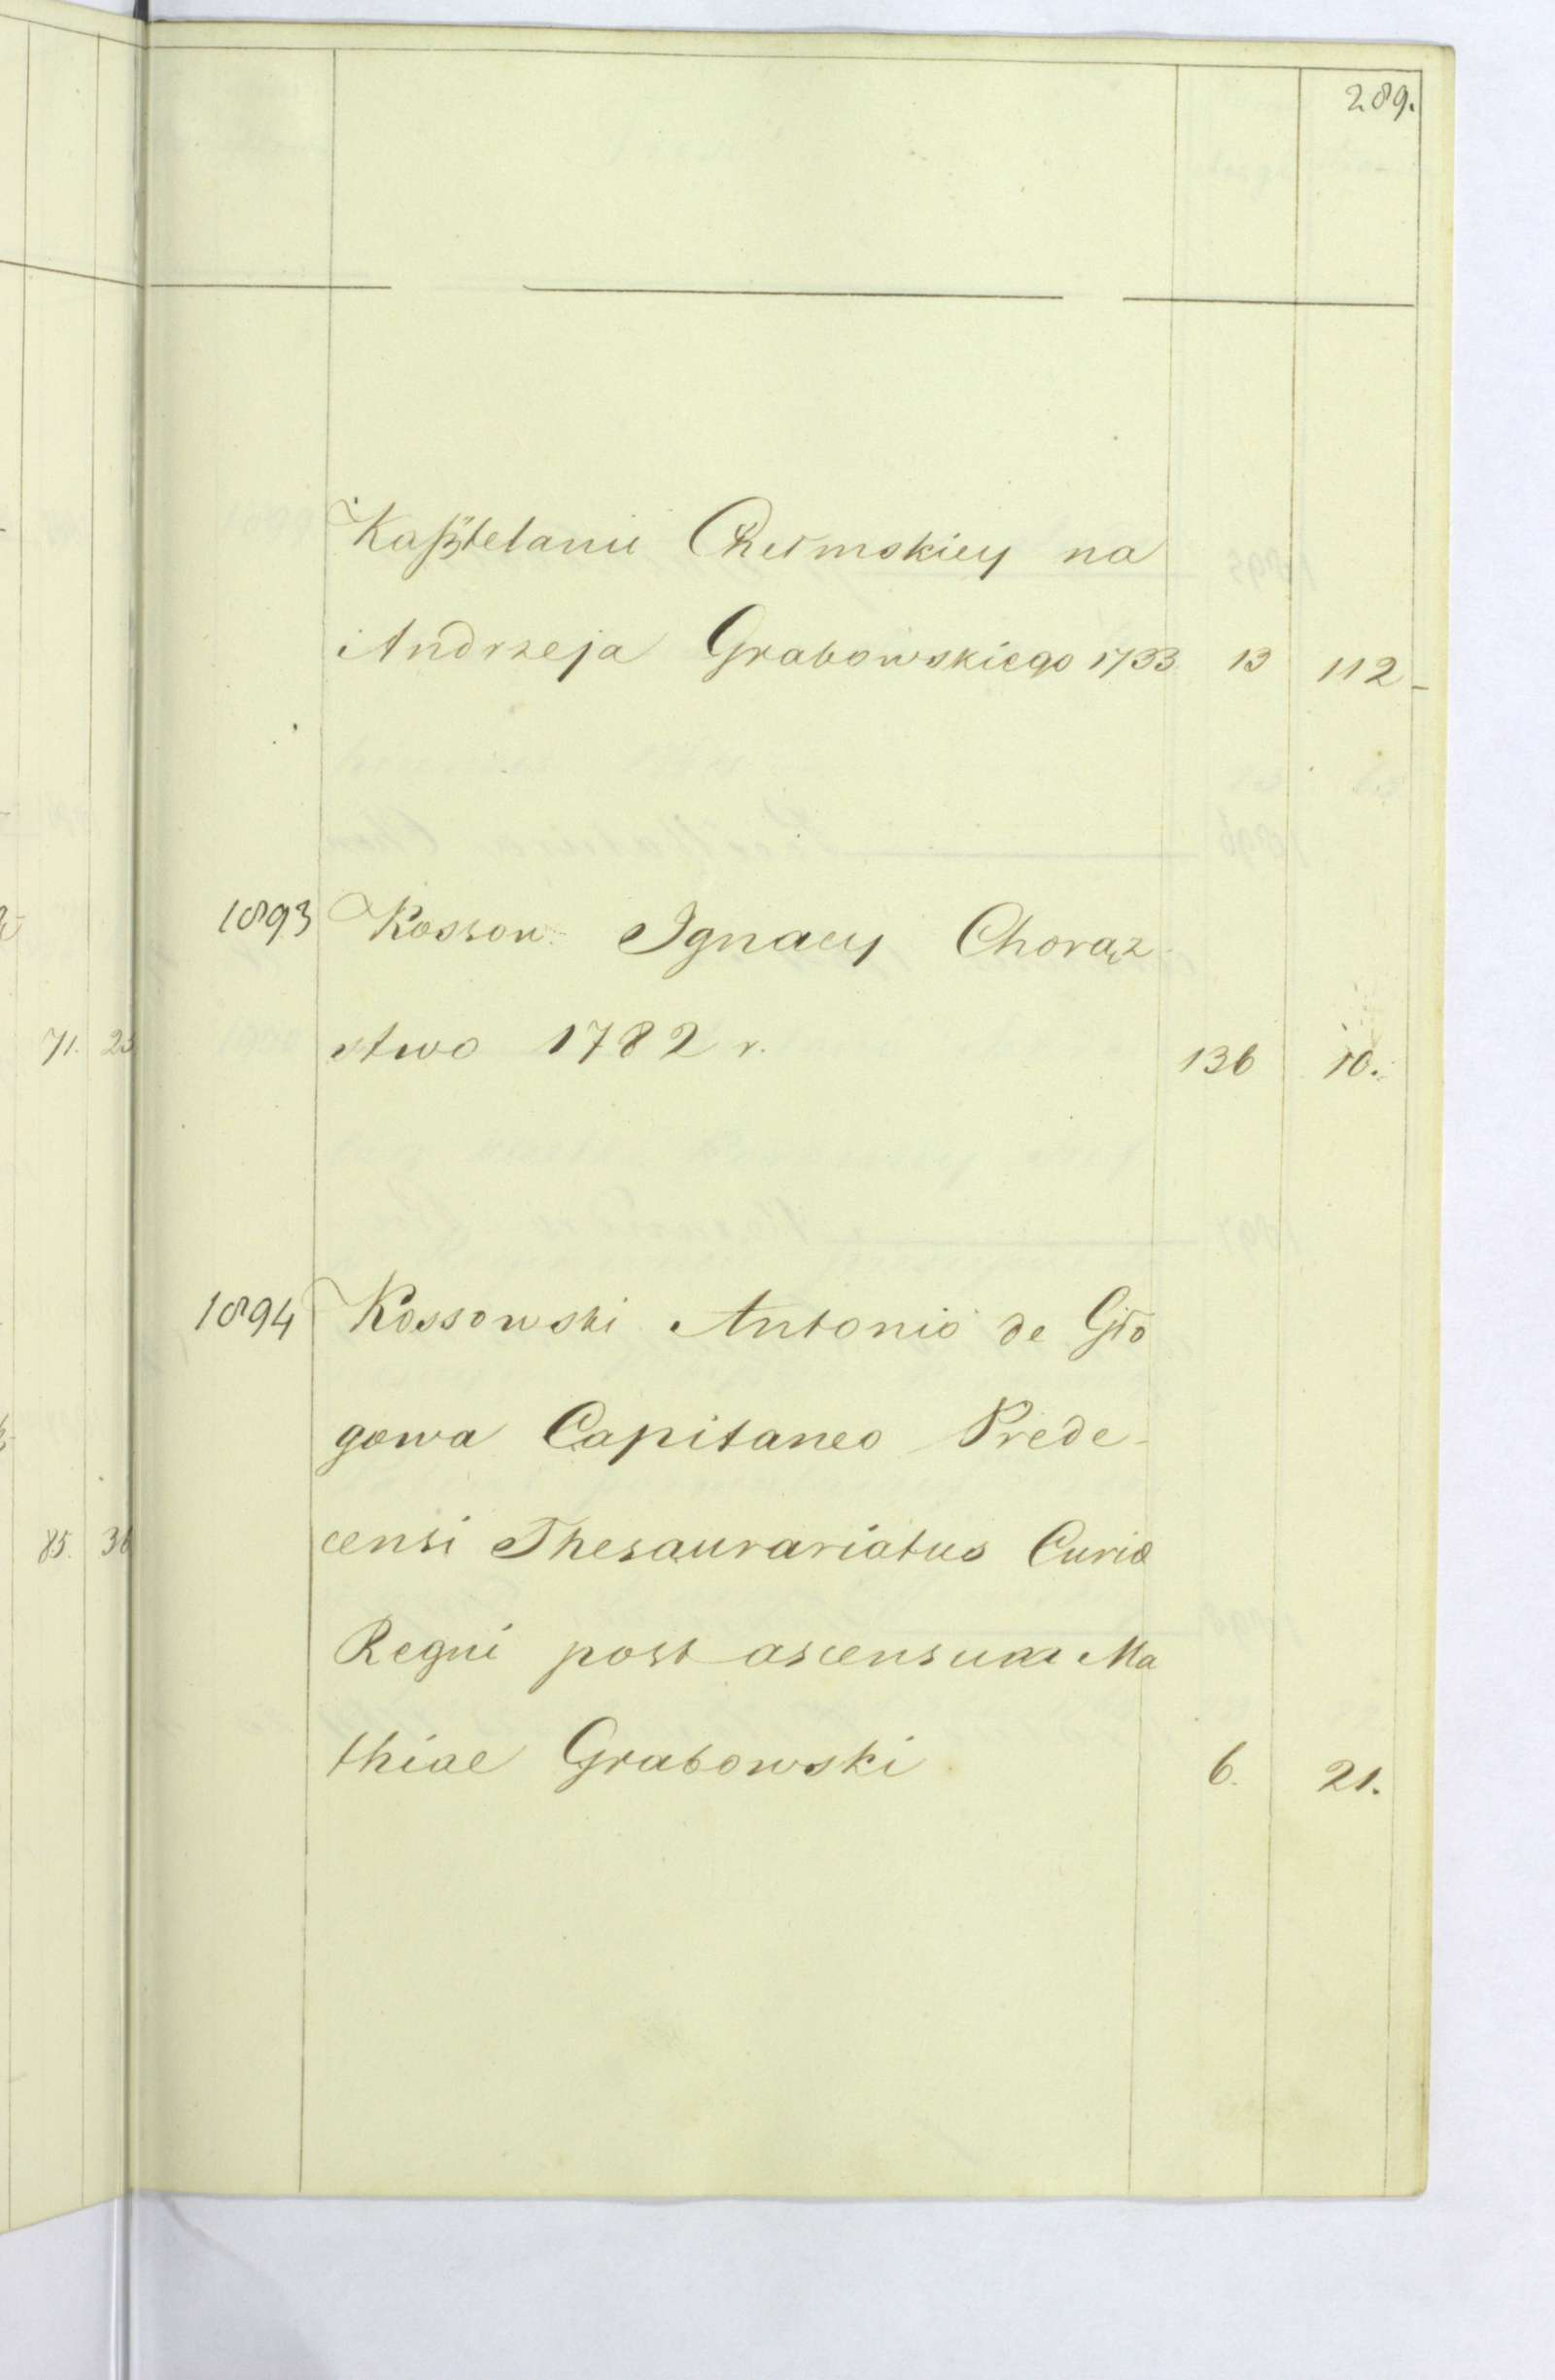 289.
Kasztelanii Chełmskiey na
Andrzeja Grabowskiego 1733 13 112
1893 Kossow Ignacy Chorąż
stwo 1782 r. 136 10.
1894 Kossowski Antonio de Gło
gowa Capitaneo Prede-
censi Thesaurariatus Curiae
Regni post ascensum Ma
thiae Grabowski 6. 21.
71. 23
85. 36